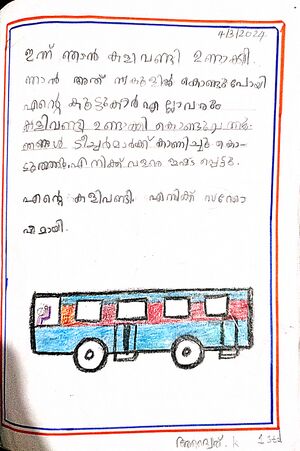 4/3/2024
ഇന്ന് ഞാൻ കളിവണ്ടി ഉണാക്കി.
ഞാൻ അത് സ്കൂളിൽ കൊണ്ടുപോയി
എന്റെ കൂട്ടുകാർ എല്ലാവരും
കളിവണ്ടി ഉണ്ടാക്കി കൊണ്ടുവന്നു
ഞങ്ങൾ ടീച്ചർമാർക്ക് കാണിച്ചു കൊ-
ടുത്തു. എനിക്ക് വളരെ ഇഷ്ടപ്പെട്ടു.
എന്റെ കളിവണ്ടി. എനിക്ക് സന്തോ
ഷമായി.
അദ്വൈത്. k 1 std